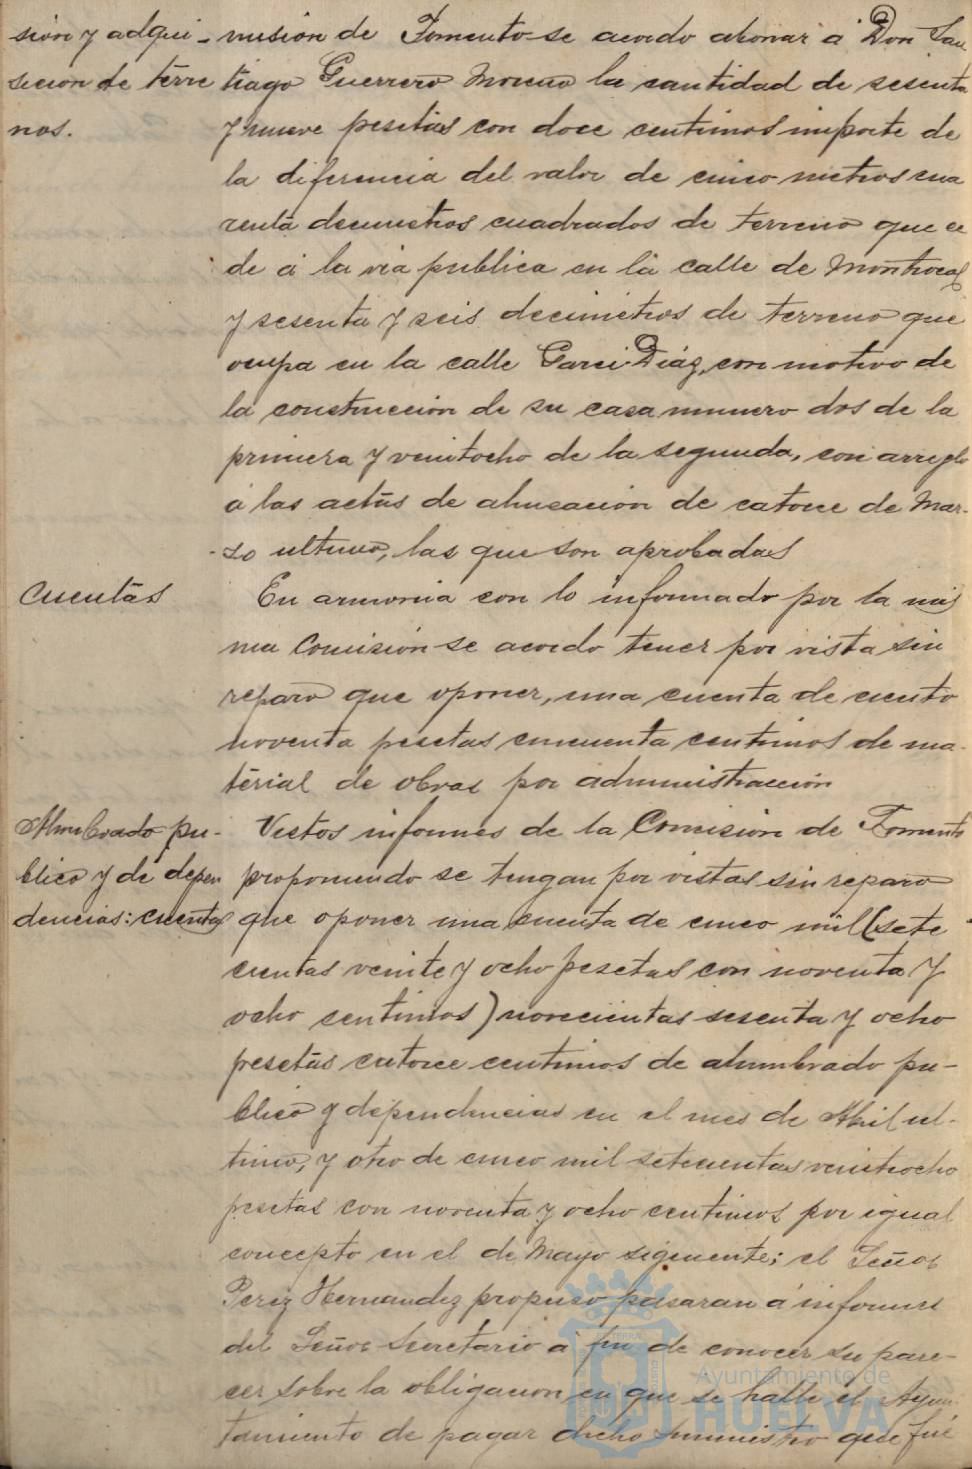 sión y adqui-
sicion de terre
nos.
misión de Fomento se acordo abonar á Don San
tiago Guerrero Moreno la cantidad de sesenta
y nueve pesetas con doce centimos importe de
la diferencia del valor de cinco metros cua
renta decimetros cuadrados de terreno que ce
de á la via publica en la calle de Montrocal
y sesenta y seis decimetros de terreno que
ocupa en la calle Garci-Diáz, con motivo de
la construccion de su casa numero dos de la
primera y veintiocho de la segunda, con arreglo
á las actas de alineación de catorce de Mar-
so ultimo, las que son aprobadas
Cuentas
En armonia con lo informado por la mis
ma Comisión se acordo tener por vista sin
reparo que oponer, una cuenta de ciento
noventa pesetas cincuenta centimos de ma
terial de obras por administracción
Alumbrado pu-
blico y de depen
dencias: cuentas
Vistos informes de la Comision de Fomento
proponiendo se tengan por vistas sin reparo
que oponer una cuenta de cinco mil (sete
cientas veinte y ocho pesetas con noventa y
ocho centimos) novecientas sesenta y ocho
pesetas catorce centimos de alumbrado pu-
blico y dependencias en el mes de Abril ul-
timo, y otro de cinco mil setecientas veintiocho
pesetas con noventa y ocho centimos por igual
concepto en el de Mayo siguiente; el Señor
Perez Hernandez propuso pasaran á informe
del Señor Secretario á fin de conocer su pare-
cer sobre la obligacion en que se halle el Ayun
tamiento de pagar dicho suministro que fué
Ayuntamiento de
HUELVA